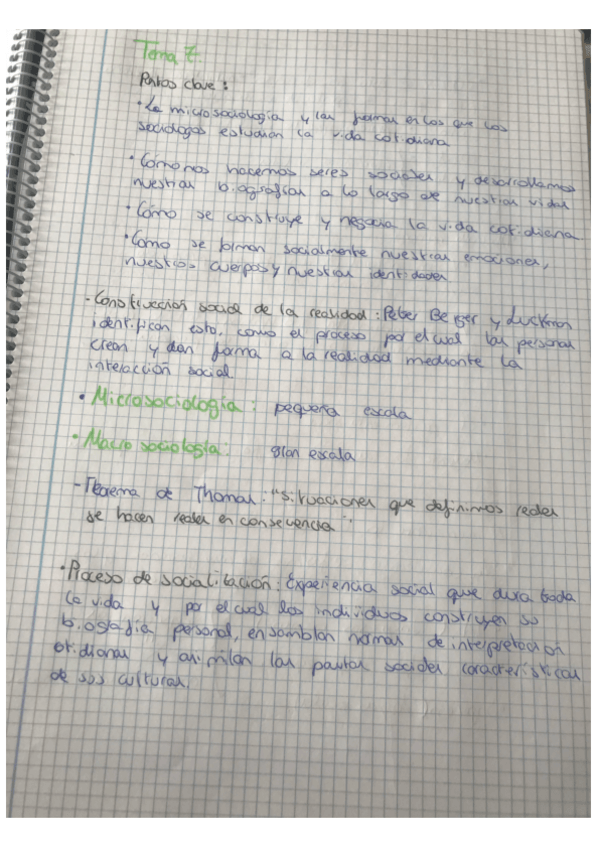 Tema 7.
Puntos clave:
· La microsociología y las formas en las que los
sociólogos estudian la vida cotidiana
· Cómo nos hacemos seres sociales y desarrollamos
nuestras biografías a lo largo de nuestras vidas
· Cómo se construye y negocia la vida cotidiana
· Como se forman socialmente nuestras emociones,
nuestros cuerpos y nuestras identidades
- Construcción social de la realidad: Peter Berger y Luckman
identifican esto, como el proceso por el cual las personas
crean y dan forma a la realidad mediante la
interacción social
· Microsociología: pequeña escala
· Macrosociología: gran escala
- Teorema de Thomas: "situaciones que definimos reales
se hacen reales en consecuencia".
· Proceso de socialitación: Experiencia social que dura toda
la vida y por el cual los individuos construyen su
biografía personal, ensamblan normas de interpretación
cotidianas y asimilan las pautas sociales características
de sus culturas.